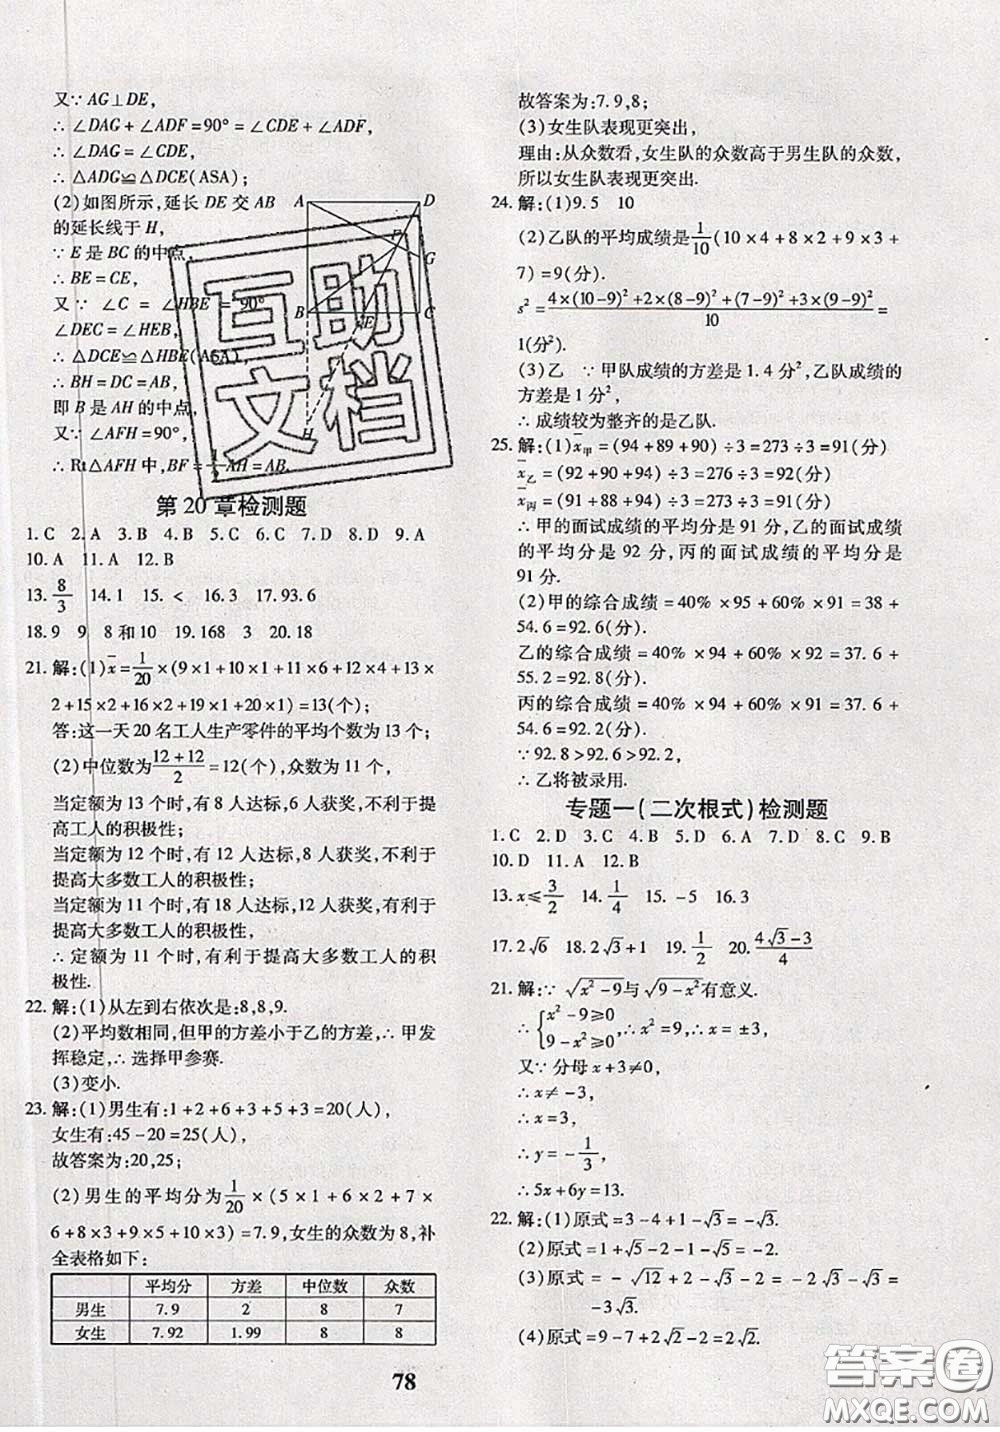 又∵AG⊥DE,
∴∠DAG+∠ADF=90°=∠CDE+∠ADF,
∴∠DAG=∠CDE,
∴△ADG≌△DCE(ASA);
(2)如图所示,延长 DE 交 AB
的延长线于 H,
∵E 是 BC 的中点,
∴BE=CE,
又∵∠C=∠HBE=90°
∠DEC=∠HEB,
∴△DCE≌△HBE(ASA),
∴BH=DC=AB,
即 B 是 AH 的中点,
又∵∠AFH=90°,
∴Rt△AFH 中,BF=1/2AH=AB.
A D F G B E C H
互助
文档
第 20 章检测题
1.C 2.A 3.B 4.B 5.C 6.C 7.D 8.D 9.A
10.A 11.A 12.B
13.8/3 14.1 15.< 16.3 17.93.6
18.9 9 8 和 10 19.168 3 20.18
21.解:(1)x̄=1/20×(9×1+10×1+11×6+12×4+13×
2+15×2+16×2+19×1+20×1)=13(个);
答:这一天 20 名工人生产零件的平均个数为 13 个;
(2)中位数为(12+12)/2=12(个),众数为 11 个,
当定额为 13 个时,有 8 人达标,6 人获奖,不利于提
高工人的积极性;
当定额为 12 个时,有 12 人达标,8 人获奖,不利于
提高大多数工人的积极性;
当定额为 11 个时,有 18 人达标,12 人获奖,有利于
提高大多数工人的积极性,
∴定额为 11 个时,有利于提高大多数工人的积极
性.
22.解:(1)从左到右依次是:8,8,9.
(2)平均数相同,但甲的方差小于乙的方差,∴甲发
挥稳定,∴选择甲参赛.
(3)变小.
23.解:(1)男生有:1+2+6+3+5+3=20(人),
女生有:45-20=25(人),
故答案为:20,25;
(2)男生的平均分为1/20×(5×1+6×2+7×
6+8×3+9×5+10×3)=7.9,女生的众数为 8,补
全表格如下:
平均分 方差 中位数 众数
男生 7.9 2 8 7
女生 7.92 1.99 8 8
故答案为:7.9,8;
(3)女生队表现更突出,
理由:从众数看,女生队的众数高于男生队的众数,
所以女生队表现更突出.
24.解:(1)9.5 10
(2)乙队的平均成绩是1/10(10×4+8×2+9×3+
7)=9(分).
s²=(4×(10-9)²+2×(8-9)²+(7-9)²+3×(9-9)²)/10=
1(分²).
(3)乙 ∵甲队成绩的方差是 1.4 分²,乙队成绩的
方差是 1 分²
∴成绩较为整齐的是乙队.
25.解:(1)x̄甲=(94+89+90)÷3=273÷3=91(分)
x̄乙=(92+90+94)÷3=276÷3=92(分)
x̄丙=(91+88+94)÷3=273÷3=91(分)
∴甲的面试成绩的平均分是 91 分,乙的面试成绩
的平均分是 92 分,丙的面试成绩的平均分是
91 分.
(2)甲的综合成绩=40%×95+60%×91=38+
54.6=92.6(分).
乙的综合成绩=40%×94+60%×92=37.6+
55.2=92.8(分).
丙的综合成绩=40%×94+60%×91=37.6+
54.6=92.2(分).
∵92.8>92.6>92.2,
∴乙将被录用.
专题一(二次根式)检测题
1.C 2.D 3.C 4.C 5.D 6.A 7.D 8.C 9.B
10.D 11.A 12.B
13.x≤3/2 14.1/4 15.-5 16.3
17.2√6 18.2√3+1 19.1/2 20.(4√3-3)/4
21.解:∵√(x²-9)与√(9-x²)有意义.
∴{x²-9≥0 9-x²≥0,∴x²=9,∴x=±3,
又∵分母 x+3≠0,
∴x≠-3,
∴x=3,
∴y=-1/3,
∴5x+6y=13.
22.解:(1)原式=3-4+1-√3=-√3.
(2)原式=1+√5-2-1-√5=-2.
(3)原式=-√12+2-√3-2=-2√3-√3=
-3√3.
(4)原式=9-7+2√2-2=2√2.
78
答案圈
MXQE.COM